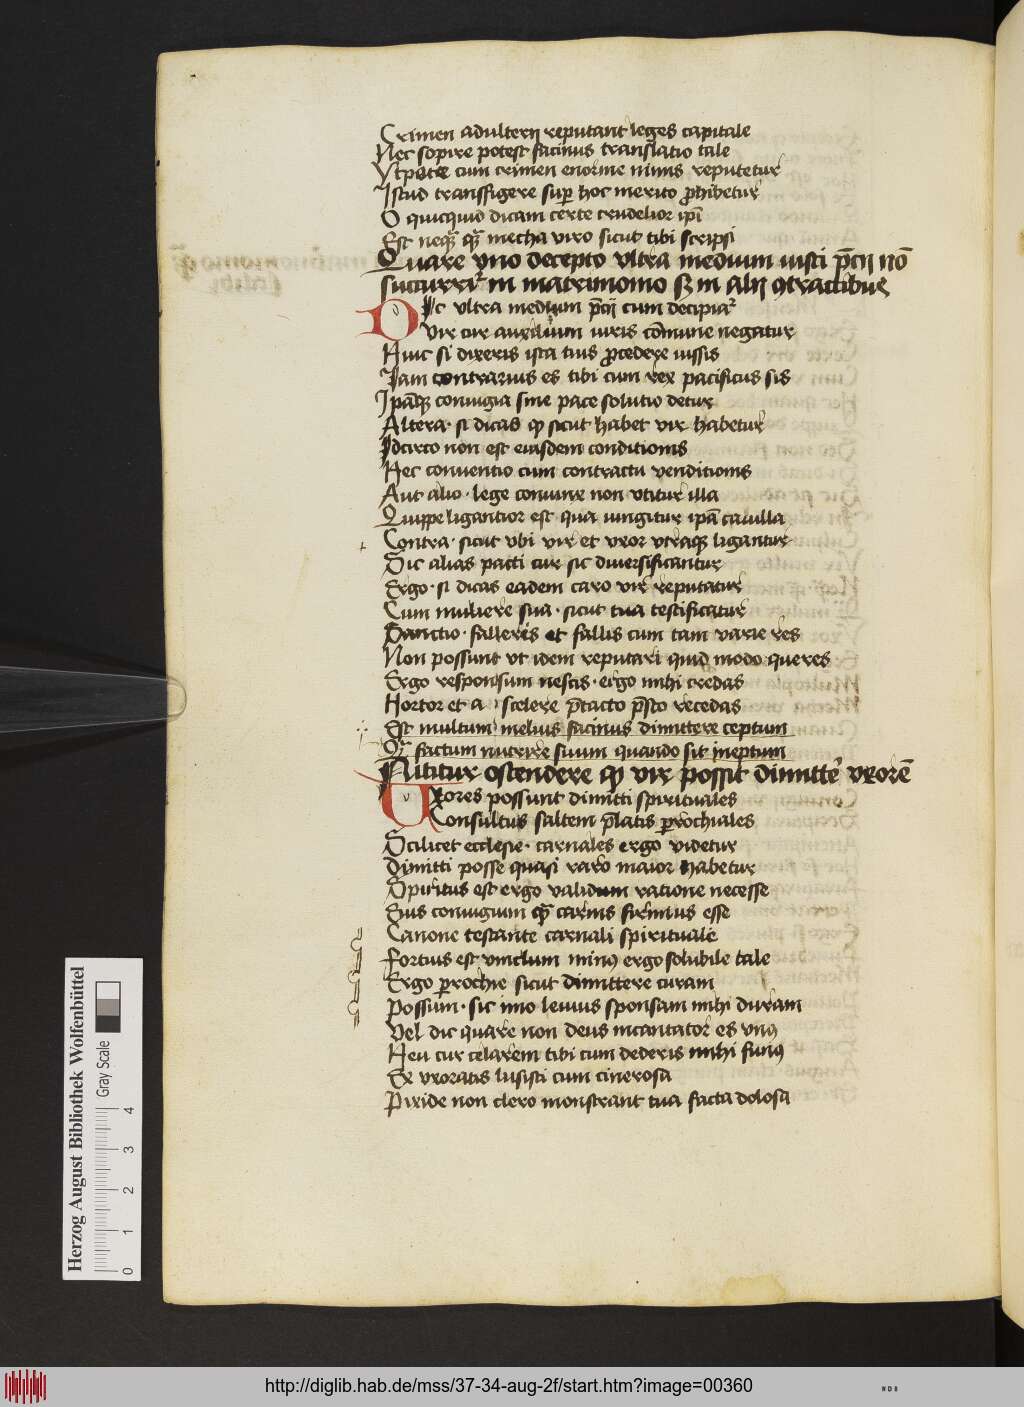 Crimen adulterij reputant leges capitale
Nec sopire potest facinus translatio tale
Vtpote cum crimen enorme nimis reputetur
Istud transfigere sup̱ hoc merito ꝓhibetur
O quicquid dicam certe crudelior ip̄i
Est neq̄ꝫ q̄ꝫ mecha viro sicut tibi scripsi
Quare vno decepto vltra medium iusti p̄cij nō
succurrit᷑ in matrimonio sꝫ in alijs ꝯtractibus
Dic vltra medium p̄cij cum decipiat᷑
Vir cur auxilium iuris cōmune negatur
Huic si dixeris ista tuis ꝓcedere iussis
Iam contrarius es tibi cum rex pacificus sis
Ip̄aqꝫ coniugia sine pace solutio detur
Altera · si dicas ꝙ sicut habet vir habetur
Idcirco non est eiusdem conditionis
Hec conuentio cum contractu venditionis
Aut alio · lege comune non vtitur illa
Quippe ligantior est qua iungitur ip̄a cauilla
Contra · sicut vbi vir et vxor vtraqꝫ ligantur
Sic alias pacti cur sic diuersificantur
Ergo · si dicas eadem caro vir reputatur
Cum muliere sua · sicut tua testificatur
Sanctio · falleris et fallis cum tam varie res
Non possunt vt idem reputari quid modo queres
Ergo responsum nescis · ergo mihi credas
Hortor et a scelere p̄tacto p̄sto recedas
Est multum melius facinus dimittere ceptum
Qꝫ factum nutrire suum quando sit ineptum
Nititur ostendere ꝙ vir possit dimitte᷑ vxorē
Vxores possunt dimitti spirituales
Consultus saltem p̄latis ꝑrochiales
Scilicet ecclesie · carnales ergo videtur
Dimitti posse quasi raro maior habetur
Spiritus est ergo validum ratione necesse
Eius coniugium qꝫ̄ carnis firmius esse
Canone testante carnali spirituale
Fortius est vinclum minꝰ ergo solubile tale
Ergo ꝑrochie sicut dimittere curam
Possum · sic imo leuius sponsam mihi duram
Vel dic quare non deus incantator es vnꝰ
Heu cur celarem tibi cum dederis mihi funꝰ
Ex vxoratis lusisti cum cinerosa
Pixide non clero monstrant tua facta dolosa
Herzog August Bibliothek Wolfenbüttel
Gray Scale
0 1 2 3 4
http://diglib.hab.de/mss/37-34-aug-2f/start.htm?image=00360